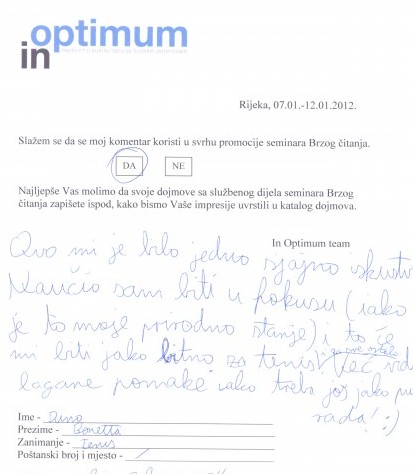 in optimum
Rijeka, 07.01.-12.01.2012.
Slažem se da se moj komentar koristi u svrhu promocije seminara Brzog čitanja.
DA NE
Najljepše Vas molimo da svoje dojmove sa službenog dijela seminara Brzog
čitanja zapišete ispod, kako bismo Vaše impresije uvrstili u katalog dojmova.
In Optimum team
Ovo mi je bilo jedno sjajno iskustv
Naučio sam biti u fokusu (iako
je to moje prirodno stanje) i to će
mi biti jako bitno za tenis i sve ostalo
Već
lagane pomake iako treba još jako
rada! :)
Ime - Dino
Prezime - Bonetta
Zanimanje - Tenis
Poštanski broj i mjesto - /